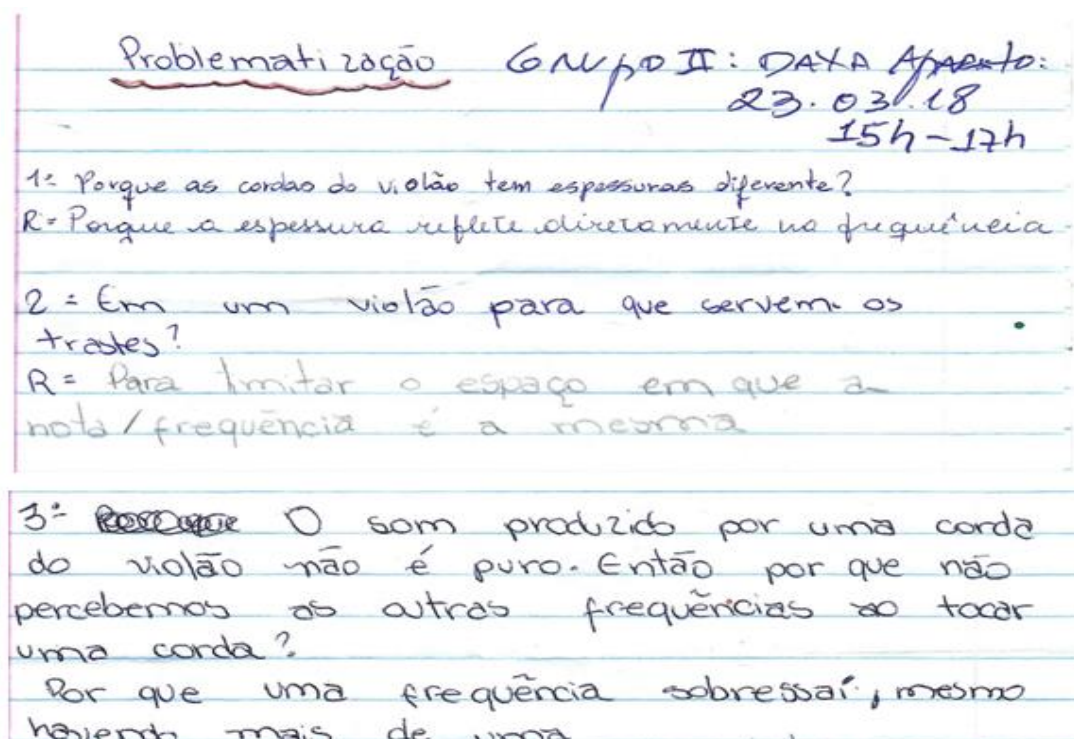 Problematização GRUPO II: DATA
23.03.18
15h-17h
1º Porque as cordas do violão tem espessuras diferente?
R= Porque a espessura reflete diretamente na frequência
2= Em um violão para que servem os
trastes?
R= Para limitar o espaço em que a
nota/frequência é a mesma
3º O som produzido por uma corda
do violão não é puro. Então por que não
percebemos as outras frequências ao tocar
uma corda?
Por que uma frequência sobressaí, mesmo
havendo mais de uma